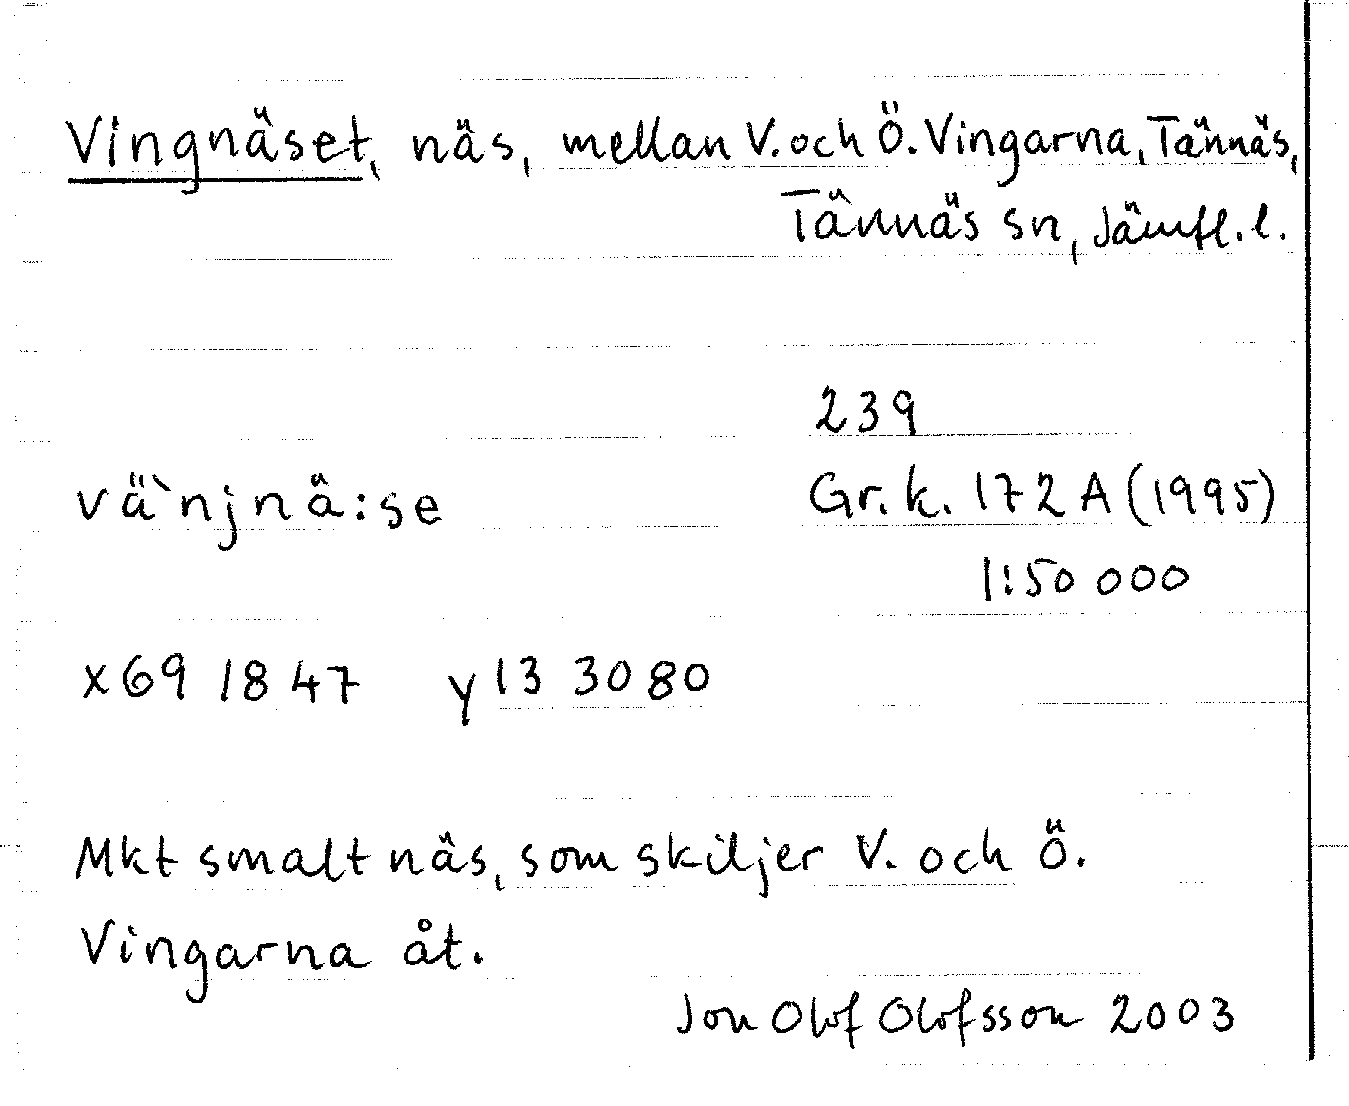 Vingnäset, näs, mellan V. och Ö. Vingarna, Tännäs,
Tännäs sn, Jämtl. l.
239
vä`njnä:se Gr. k. 172 A (1995)
1:50 000
x 69 18 47 y 13 30 80
Mkt smalt näs, som skiljer V. och Ö.
Vingarna åt.
Jon Olof Olofsson 2003